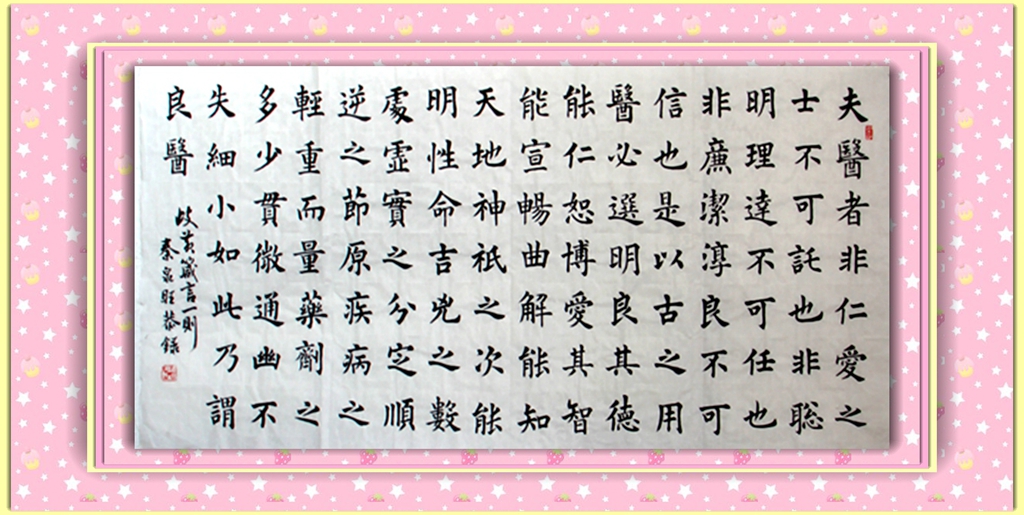 夫醫者非仁愛之
士不可託也非聡
明理達不可任也
非廉潔淳良不可
信也是以古之用
醫必選明良其德
能仁恕博愛其智
能宣暢曲解能知
天地神祇之次能
明性命吉兇之數
處虛實之分定順
逆之節原疾病之
輕重而量藥劑之
多少貫微通幽不
失細小如此乃謂
良醫
岐黃箴言一則
秦泉旺恭錄